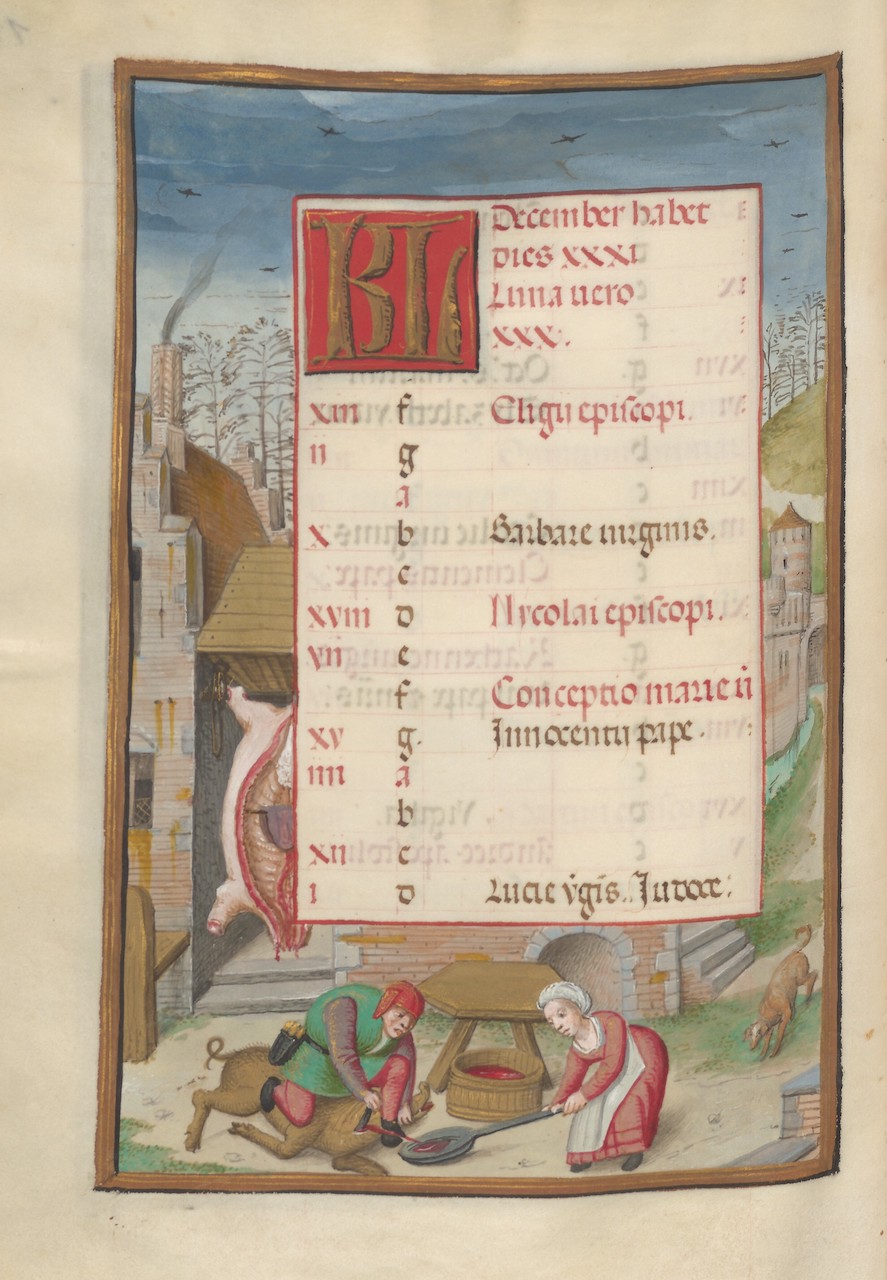 KL December habet
dies xxxi
Luna uero
xxx.
xiii f Eligii episcopi.
ii g
a
x b Barbare uirginis.
c
xviii d Nycolai episcopi.
vii e
f Conceptio marie ū
xv g. Innocentii pape.
iiii a
b
xii c
i d Lucie v̇gīs. Iudoce: